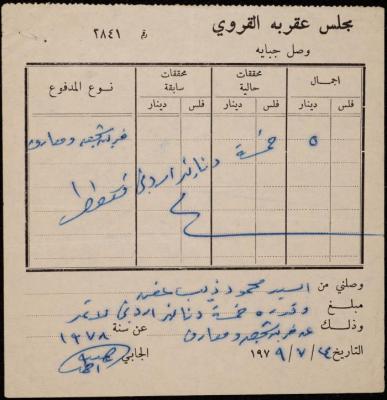 مجلس عقربه القروي
نمرة ٢٨٤١
وصل جبايه
نوع المدفوع
محققات سابقة
محققات حالية
اجمال
دينار فلس دينار فلس دينار فلس
ضريبة شخصية ومعارف
٥
خمسة دنانير اردني فقط
وصلني من السيد محمود ذيب
مبلغ وقدره خمسة دنانير اردني لا غير
وذلك عن ضريبة شخصية ومعارف عن سنة ١٩٧٨
التاريخ ٢٤ / ٧ / ١٩٧٩ الجابي